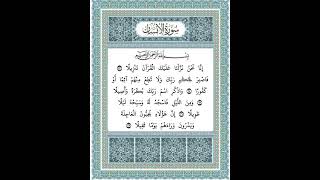 سورة الإنسان
بسم الله الرحمن الرحيم
إِنَّا نَحْنُ نَزَّلْنَا عَلَيْكَ الْقُرْآنَ تَنزِيلًا ۝
فَاصْبِرْ لِحُكْمِ رَبِّكَ وَلَا تُطِعْ مِنْهُمْ آثِمًا أَوْ
كَفُورًا ۝ وَاذْكُرِ اسْمَ رَبِّكَ بُكْرَةً وَأَصِيلًا
۝ وَمِنَ اللَّيْلِ فَاسْجُدْ لَهُ وَسَبِّحْهُ لَيْلًا
طَوِيلًا ۝ إِنَّ هَٰؤُلَاءِ يُحِبُّونَ الْعَاجِلَةَ
وَيَذَرُونَ وَرَاءَهُمْ يَوْمًا ثَقِيلًا ۝